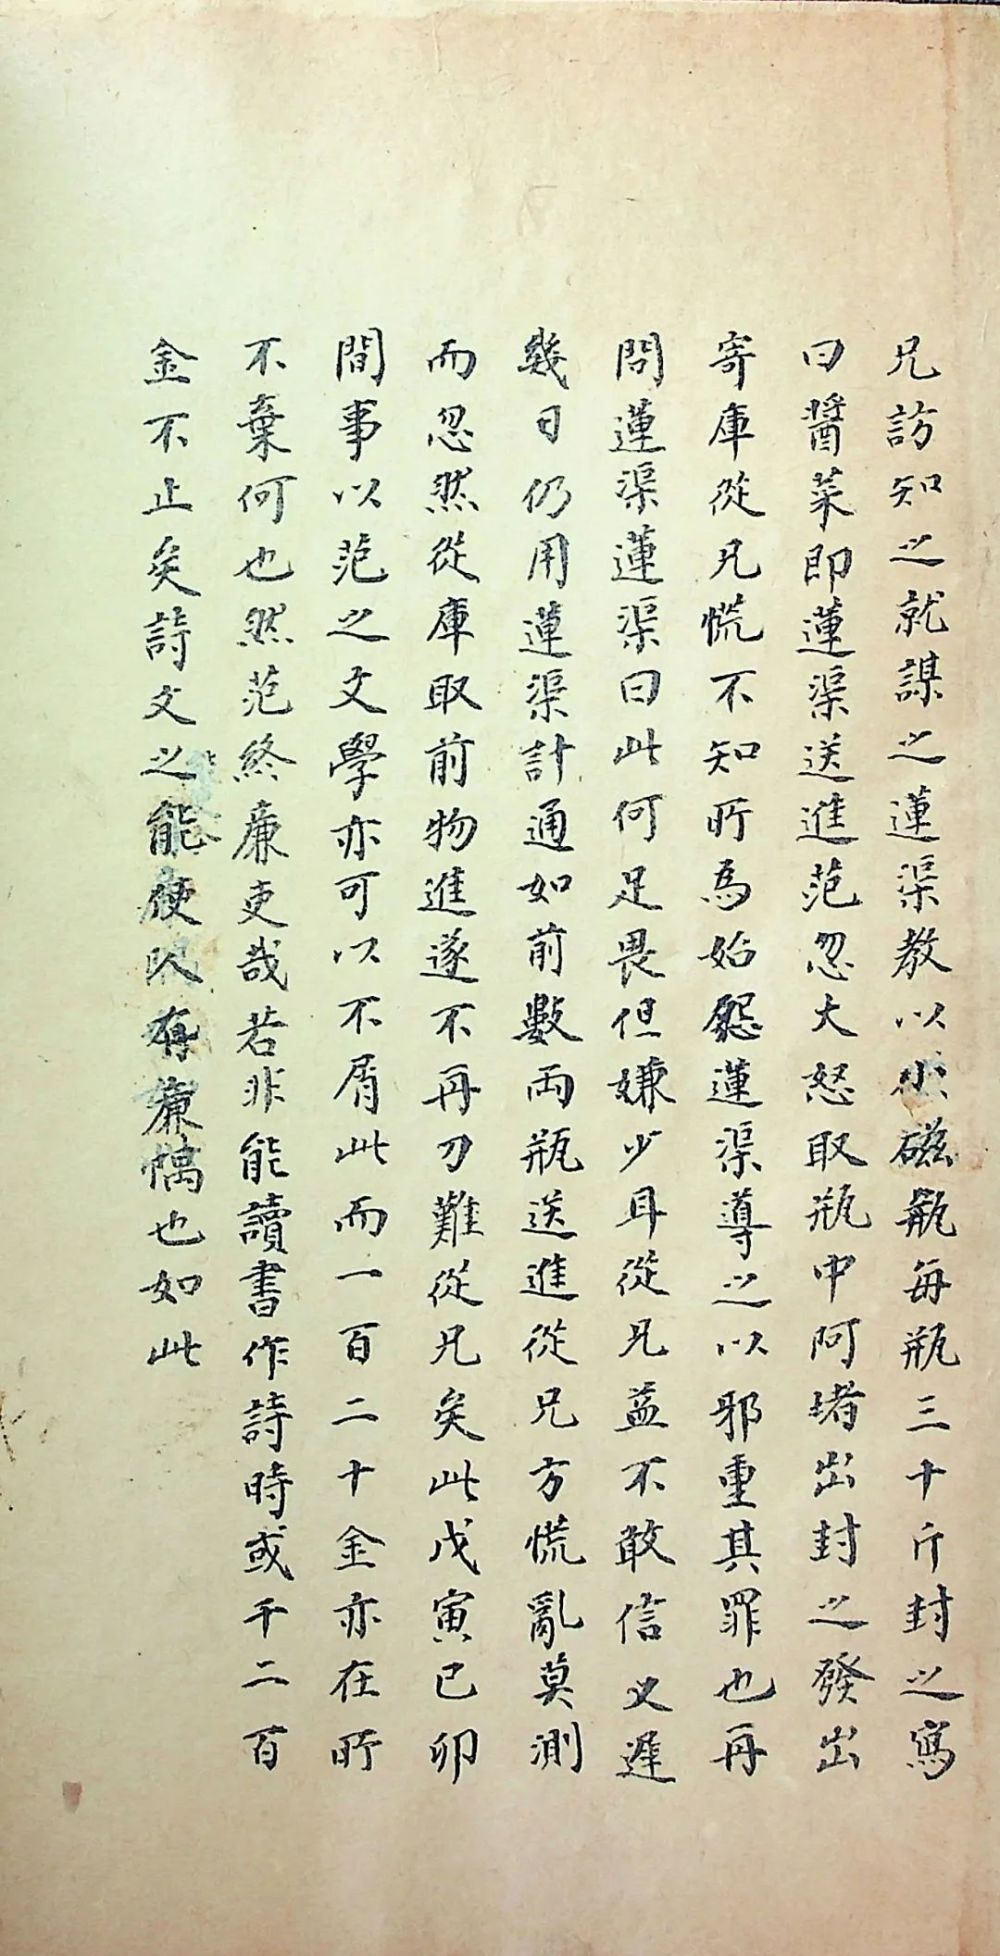 兄訪知之就謀之蓮渠教以小磁瓶每瓶三十斤封之寫
曰醬菜即蓮渠送進范忽大怒取瓶中阿堵出封之發出
寄庫從兄慌不知所為始怨蓮渠導之以邪重其罪也再
問蓮渠蓮渠曰此何足畏但嫌少耳從兄益不敢信又遲
幾日仍用蓮渠計通如前數両瓶送進從兄方慌亂莫測
而忽然從庫取前物進遂不再刀難從兄矣此戊寅已卯
間事以范之文學亦可以不屑此而一百二十金亦在所
不棄何也然范終廉吏哉若非能讀書作詩時或千二百
金不止矣詩文之能使人有廉惰也如此